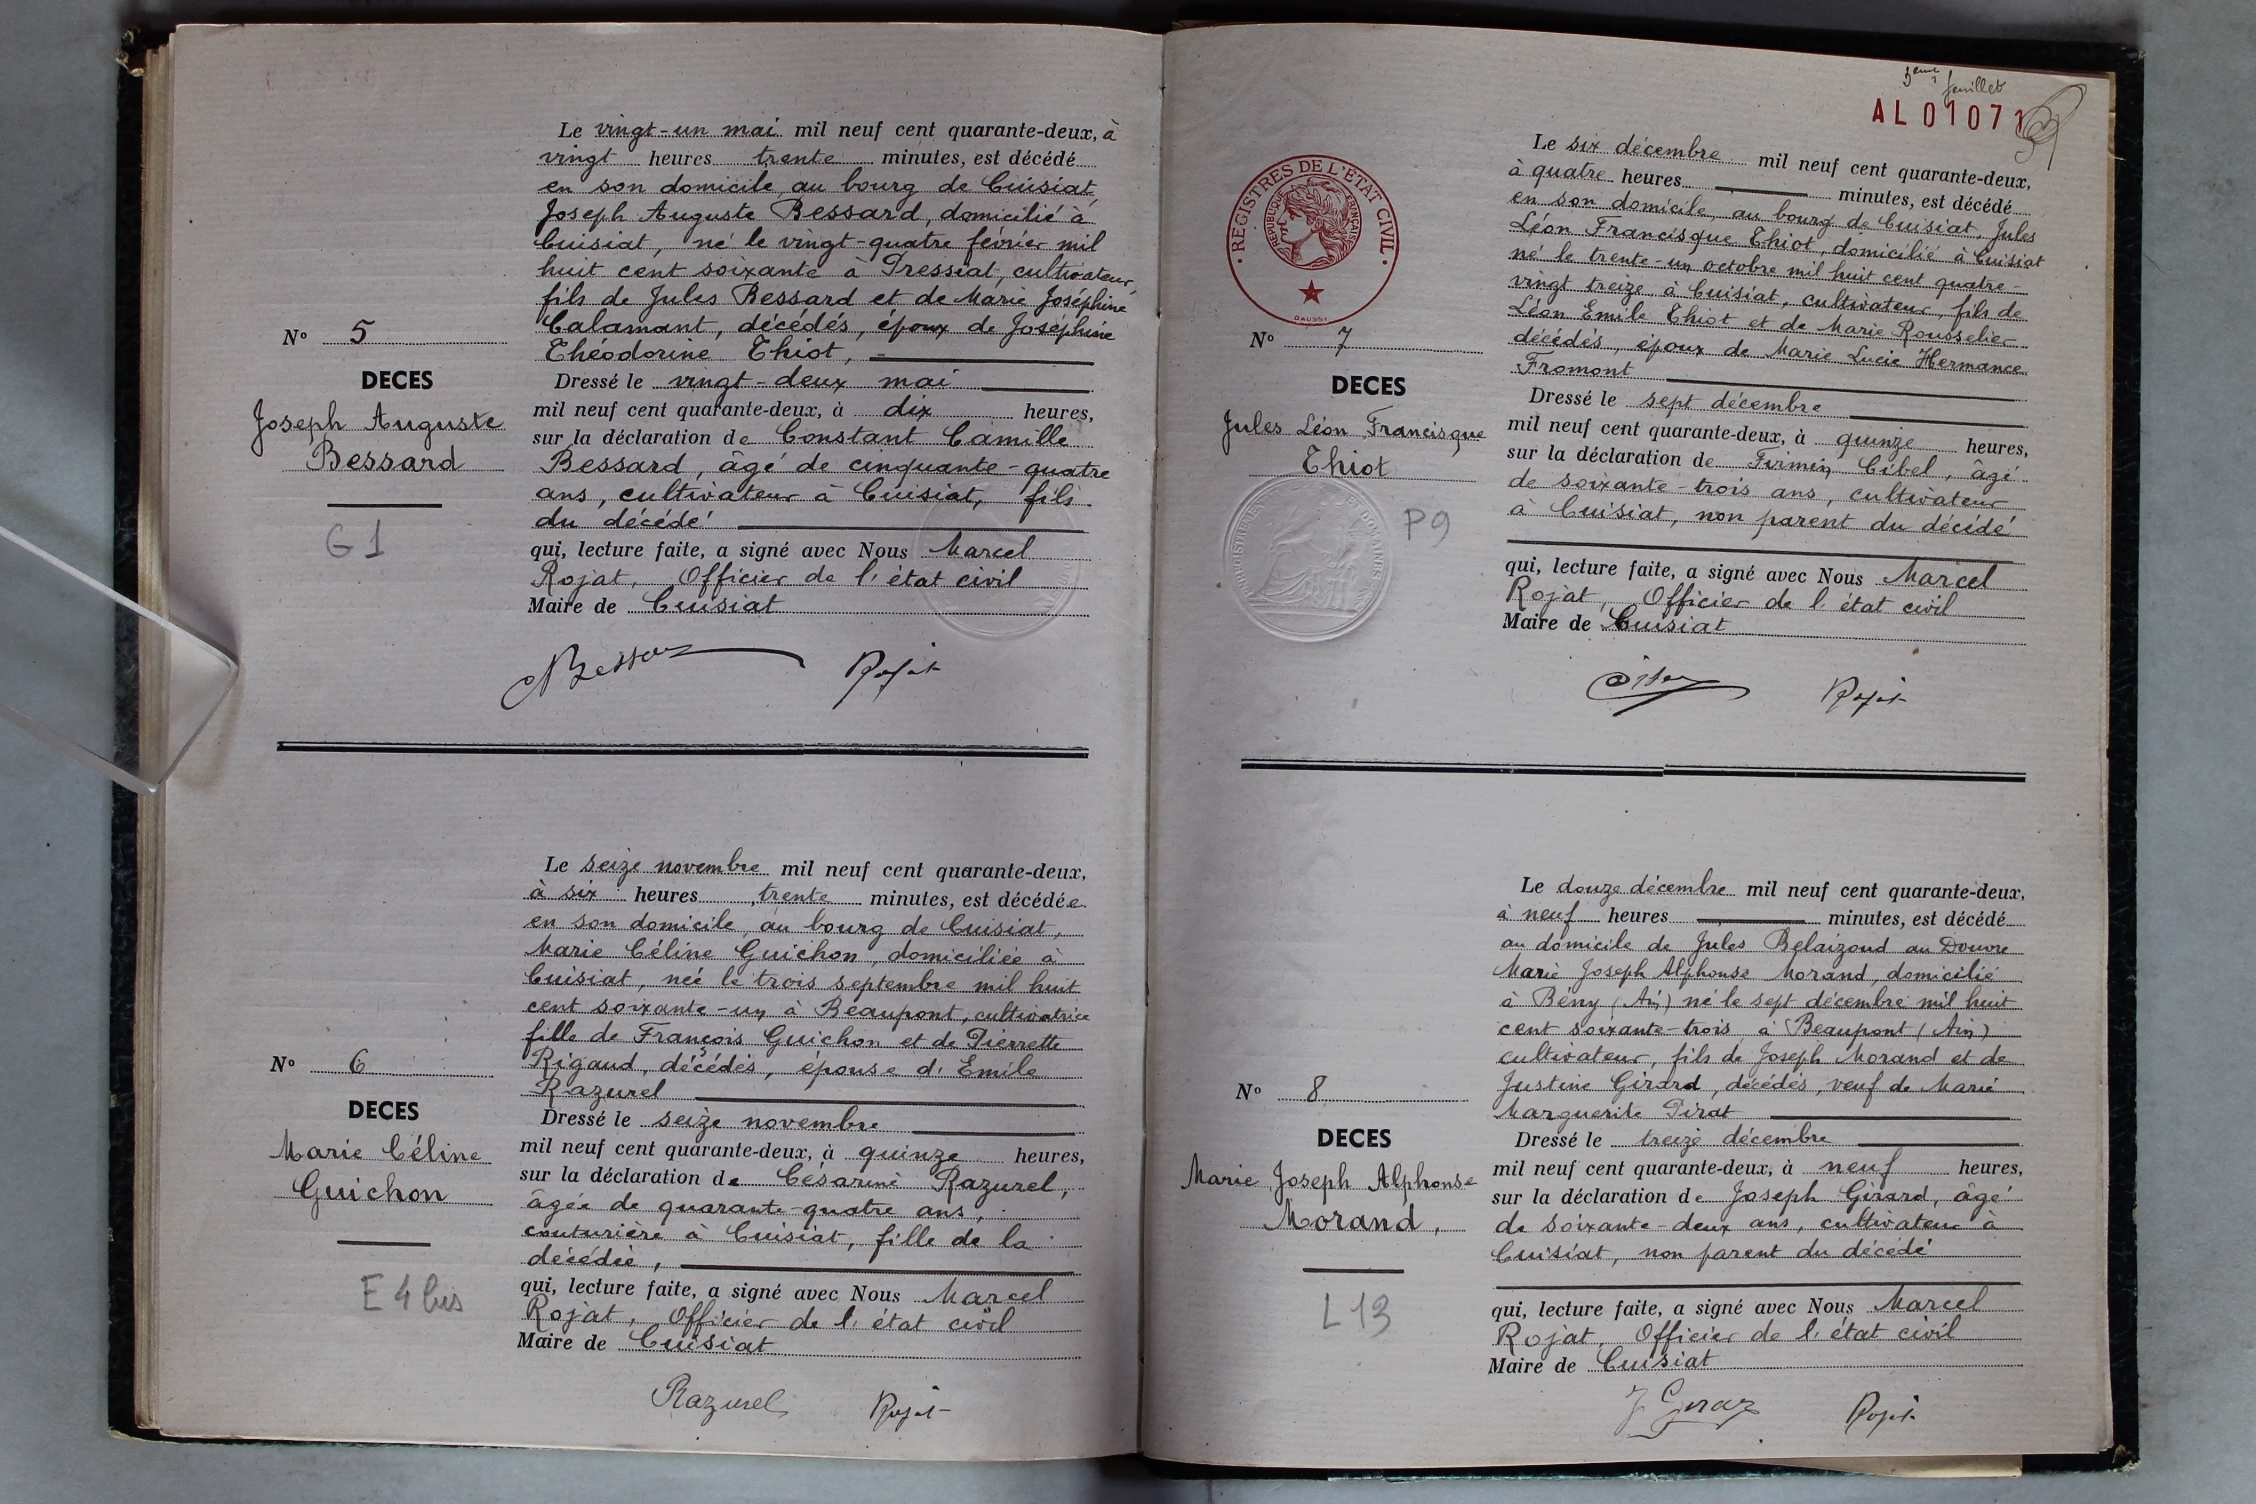 Le vingt-un mai mil neuf cent quarante-deux, à
vingt heures trente minutes, est décédé
en son domicile au bourg de Cuisiat,
Joseph Auguste Bessard, domicilié à
Cuisiat, né le vingt-quatre février mil
huit cent soixante à Pressiat, cultivateur,
fils de Jules Bessard et de Marie Joséphine
Calamant, décédés, époux de Joséphine
Théodorine Thiot,
Dressé le vingt-deux mai
mil neuf cent quarante-deux, à dix heures,
sur la déclaration de Constant Camille
Bessard, âgé de cinquante-quatre
ans, cultivateur à Cuisiat, fils
du décédé
qui, lecture faite, a signé avec Nous Marcel
Rojat, Officier de l'état civil
Maire de Cuisiat
Nº 5
DECES
Joseph Auguste
Bessard
G1
Rojat
Le seize novembre mil neuf cent quarante-deux,
à six heures trente minutes, est décédée
en son domicile, au bourg de Cuisiat,
Marie Céline Guichon, domiciliée à
Cuisiat, née le trois septembre mil huit
cent soixante-un à Beaupont, cultivatrice
fille de François Guichon et de Pierrette
Rigaud, décédés, épouse d'Emile
Razurel
Dressé le seize novembre
mil neuf cent quarante-deux, à quinze heures,
sur la déclaration de Césarine Razurel,
âgée de quarante-quatre ans,
couturière à Cuisiat, fille de la
décédée,
qui, lecture faite, a signé avec Nous Marcel
Rojat, Officier de l'état civil
Maire de Cuisiat
Nº 6
DECES
Marie Céline
Guichon
E 4 bis
Razurel Rojat
feuillet
AL 01071
REGISTRES DE L'ÉTAT CIVIL
REPUBLIQUE FRANÇAISE
Le six décembre mil neuf cent quarante-deux,
à quatre heures minutes, est décédé
en son domicile, au bourg de Cuisiat, Jules
Léon Francisque Thiot, domicilié à Cuisiat
né le trente-un octobre mil huit cent quatre-
vingt treize à Cuisiat, cultivateur, fils de
Léon Emile Thiot et de Marie Rousselier
décédés, époux de Marie Lucie Hermance
Fromont
Dressé le sept décembre
mil neuf cent quarante-deux, à quinze heures,
sur la déclaration de Firmin Cibel, âgé
de soixante-trois ans, cultivateur
à Cuisiat, non parent du décédé
qui, lecture faite, a signé avec Nous Marcel
Rojat, Officier de l'état civil
Maire de Cuisiat
Nº 7
DECES
Jules Léon Francisque
Thiot
P9
Rojat
Le douze décembre mil neuf cent quarante-deux,
à neuf heures minutes, est décédé
au domicile de Jules Belaizoud au Douvre
Marie Joseph Alphonse Morand, domicilié
à Bény (Ain) né le sept décembre mil huit
cent soixante-trois à Beaupont (Ain)
cultivateur, fils de Joseph Morand et de
Justine Girard, décédés, veuf de Marie
Marguerite Pirat
Dressé le treize décembre
mil neuf cent quarante-deux, à neuf heures,
sur la déclaration de Joseph Girard, âgé
de soixante-deux ans, cultivateur à
Cuisiat, non parent du décédé
qui, lecture faite, a signé avec Nous Marcel
Rojat, Officier de l'état civil
Maire de Cuisiat
Nº 8
DECES
Marie Joseph Alphonse
Morand,
L13
Rojat